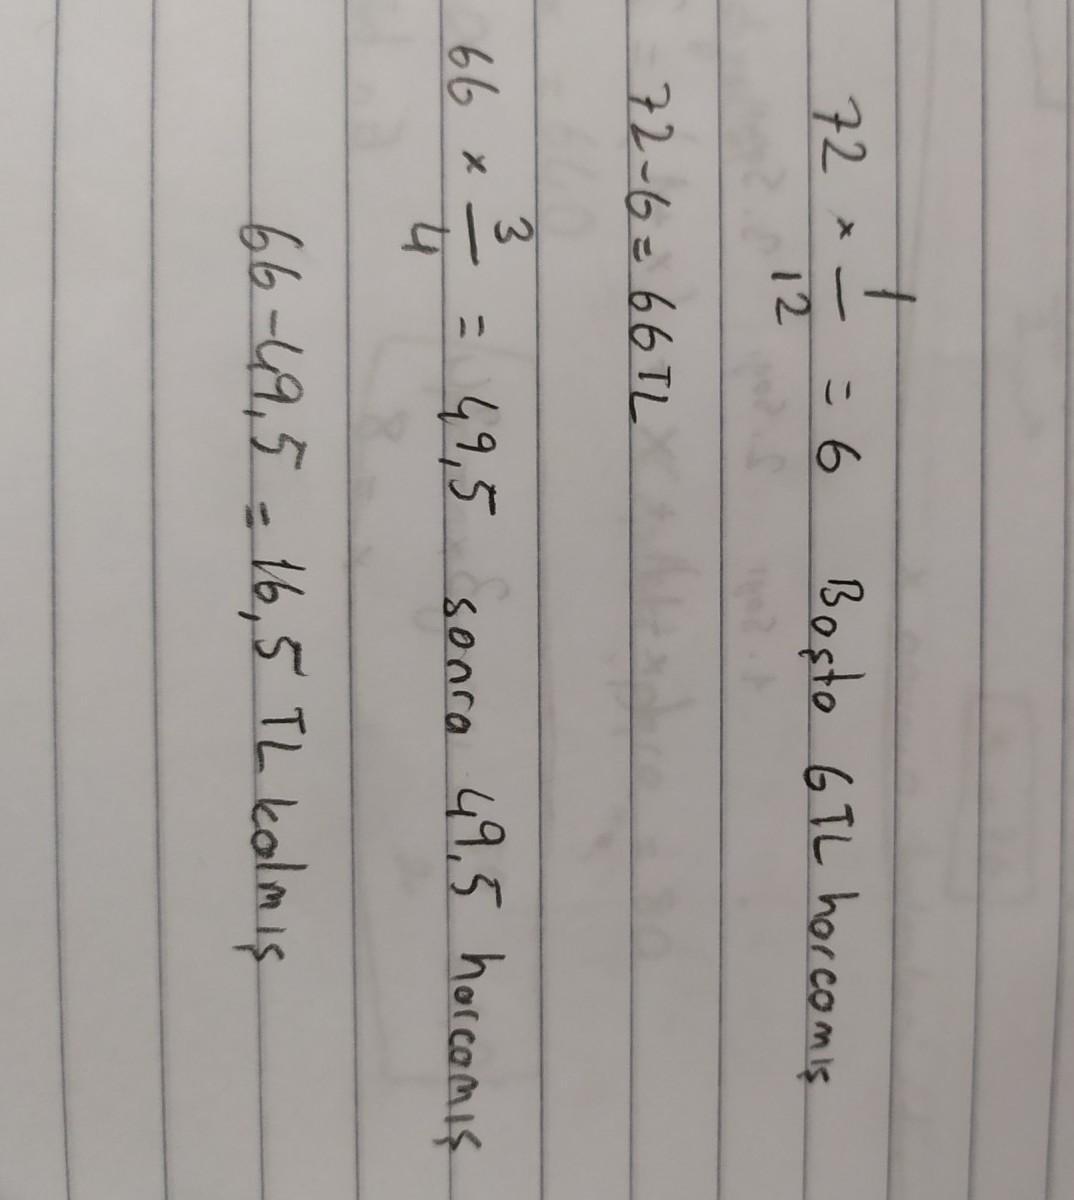 72 × 1/12 = 6 Başta 6TL harcamış
72-6= 66TL
66 × 3/4 = 49,5 sonra 49,5 harcamış
66-49,5 = 16,5 TL kalmış